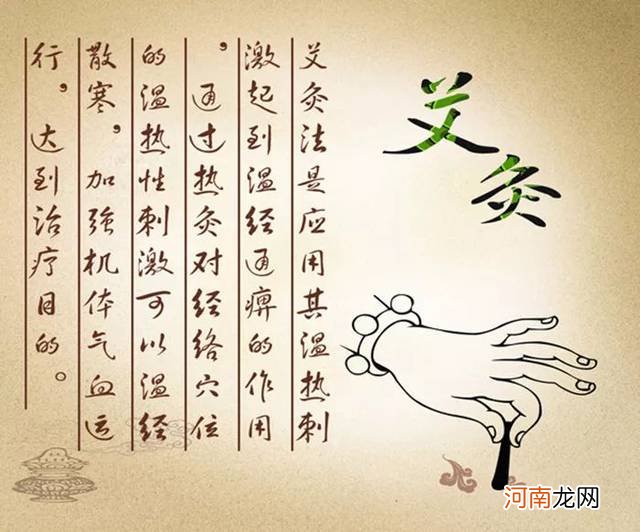 艾灸
艾灸法是应用其温热刺
激起到温经通痹的作用
，通过热灸对经络穴位
的温热性刺激可以温经
散寒，加强机体气血运
行，达到治疗目的。
河南龙网